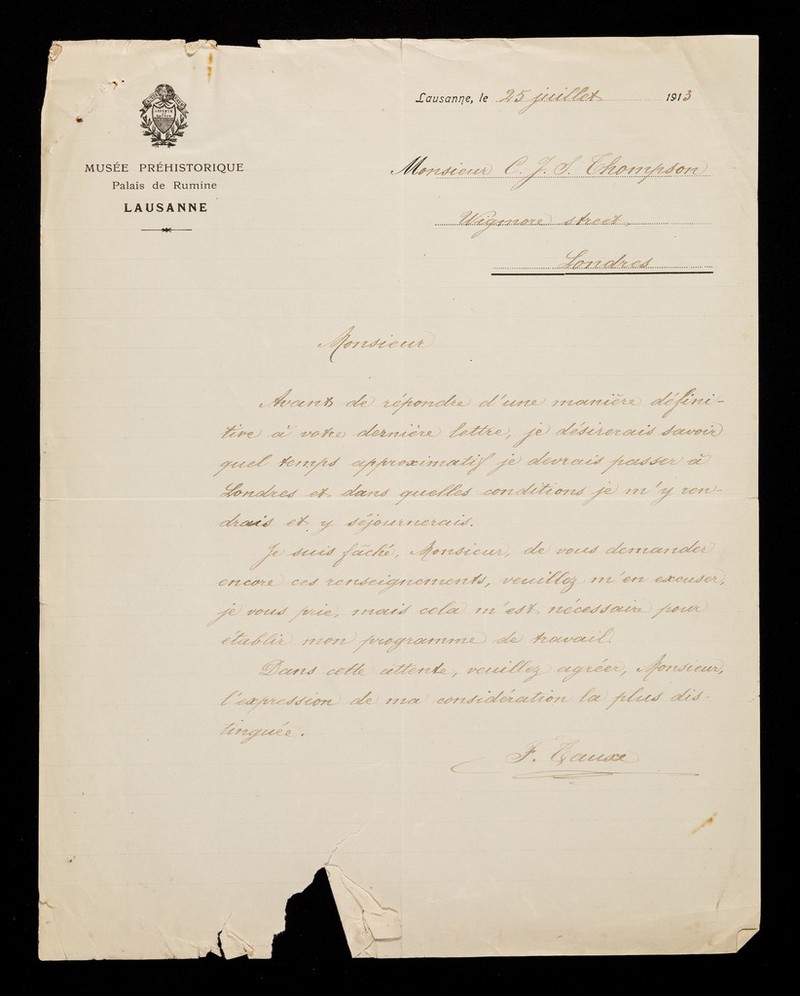 Lausanne, le 25 juillet 1913
MUSÉE PRÉHISTORIQUE
Palais de Rumine
LAUSANNE
Monsieur C. J. S. Thompson
Wigmore street,
Londres
Monsieur
Avant de répondre d'une manière défini-
tive à votre dernière lettre, je désirerais savoir
quel temps approximatif je devrais passer à
Londres et dans quelles conditions je m'y ren-
drais et y séjournerais.
Je suis fâché, Monsieur, de vous demander
encore ces renseignements, veuillez m'en excuser,
je vous prie, mais cela m'est nécessaire pour
établir mon programme de travail.
Dans cette attente, veuillez agréer, Monsieur,
l'expression de ma considération la plus dis-
tinguée.
F. Tauxe